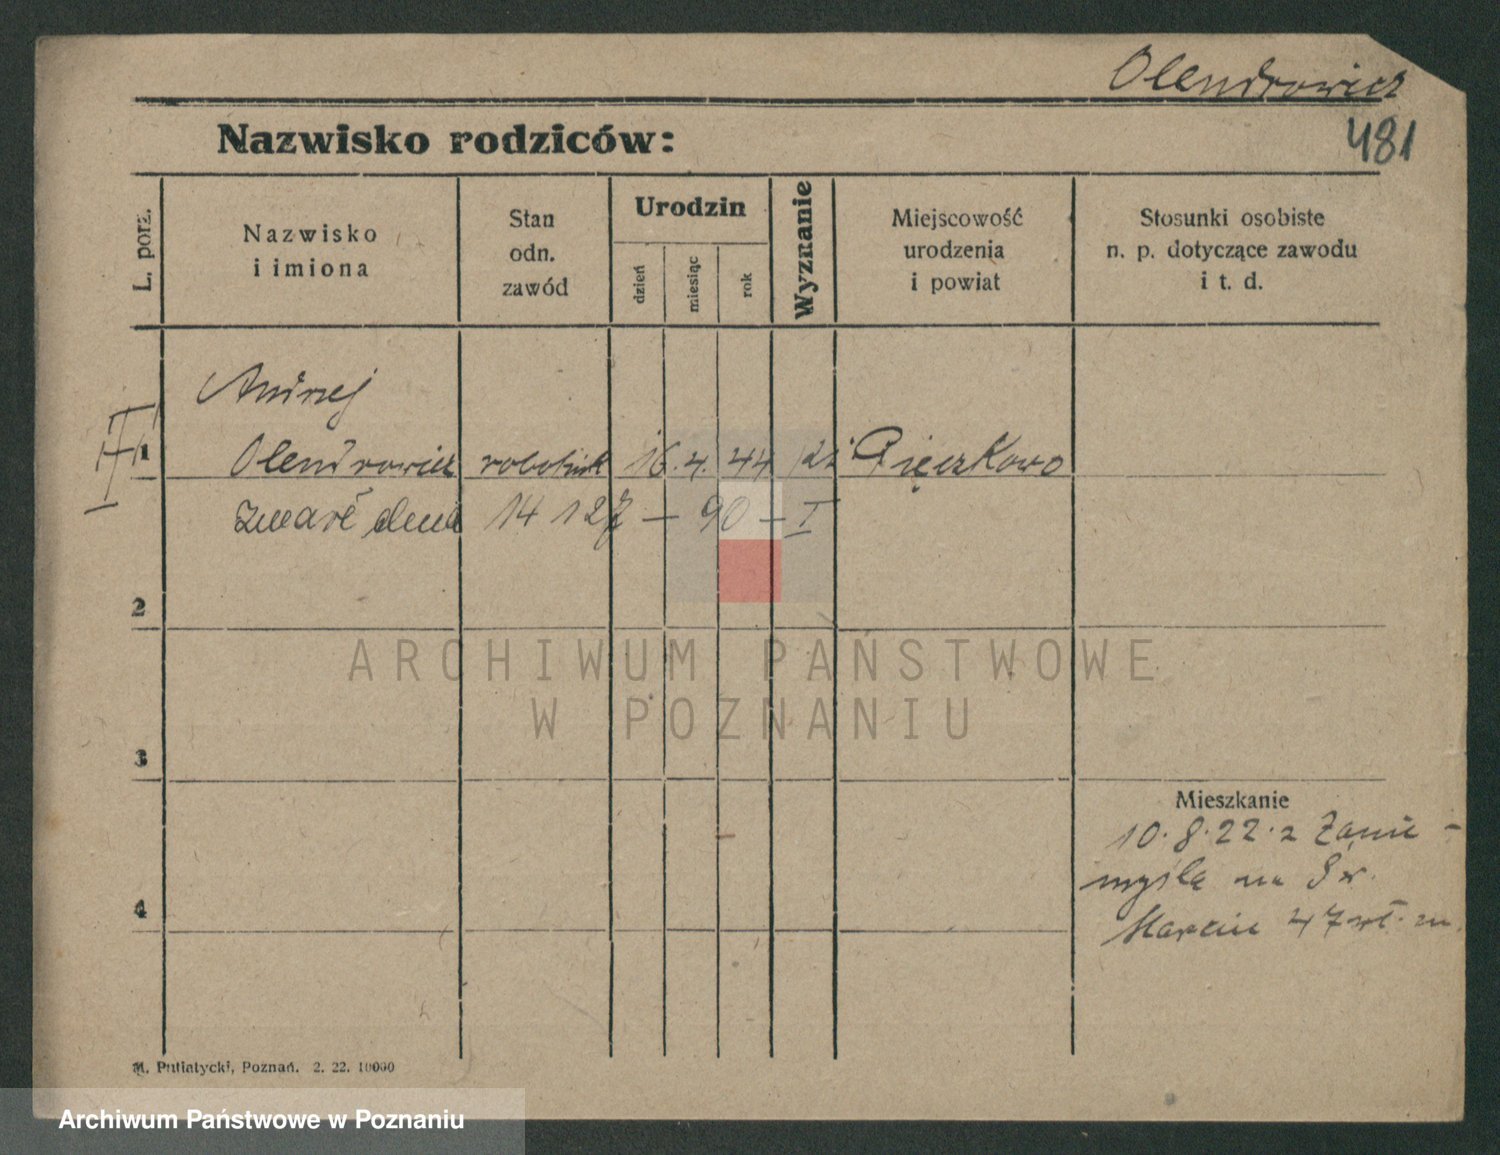 Olendrowicz
481
Nazwisko rodziców:
L. porz.
Nazwisko
i imiona
Stan
odn.
zawód
Urodzin
dzień
miesiąc
rok
Wyznanie
Miejscowość
urodzenia
i powiat
Stosunki osobiste
n. p. dotyczące zawodu
i t. d.
Andrzej
1 Olendrowicz robotnik 16. 4. 44 Pięczkowo
zmarł dnia 14 12 — 90 — I
2
3
4
Mieszkanie
10. 8. 22. z Zanie-
myśla na Św.
Marcin 47
M. Putiatycki, Poznań. 2. 22. 10000
ARCHIWUM PAŃSTWOWE
W POZNANIU
Archiwum Państwowe w Poznaniu